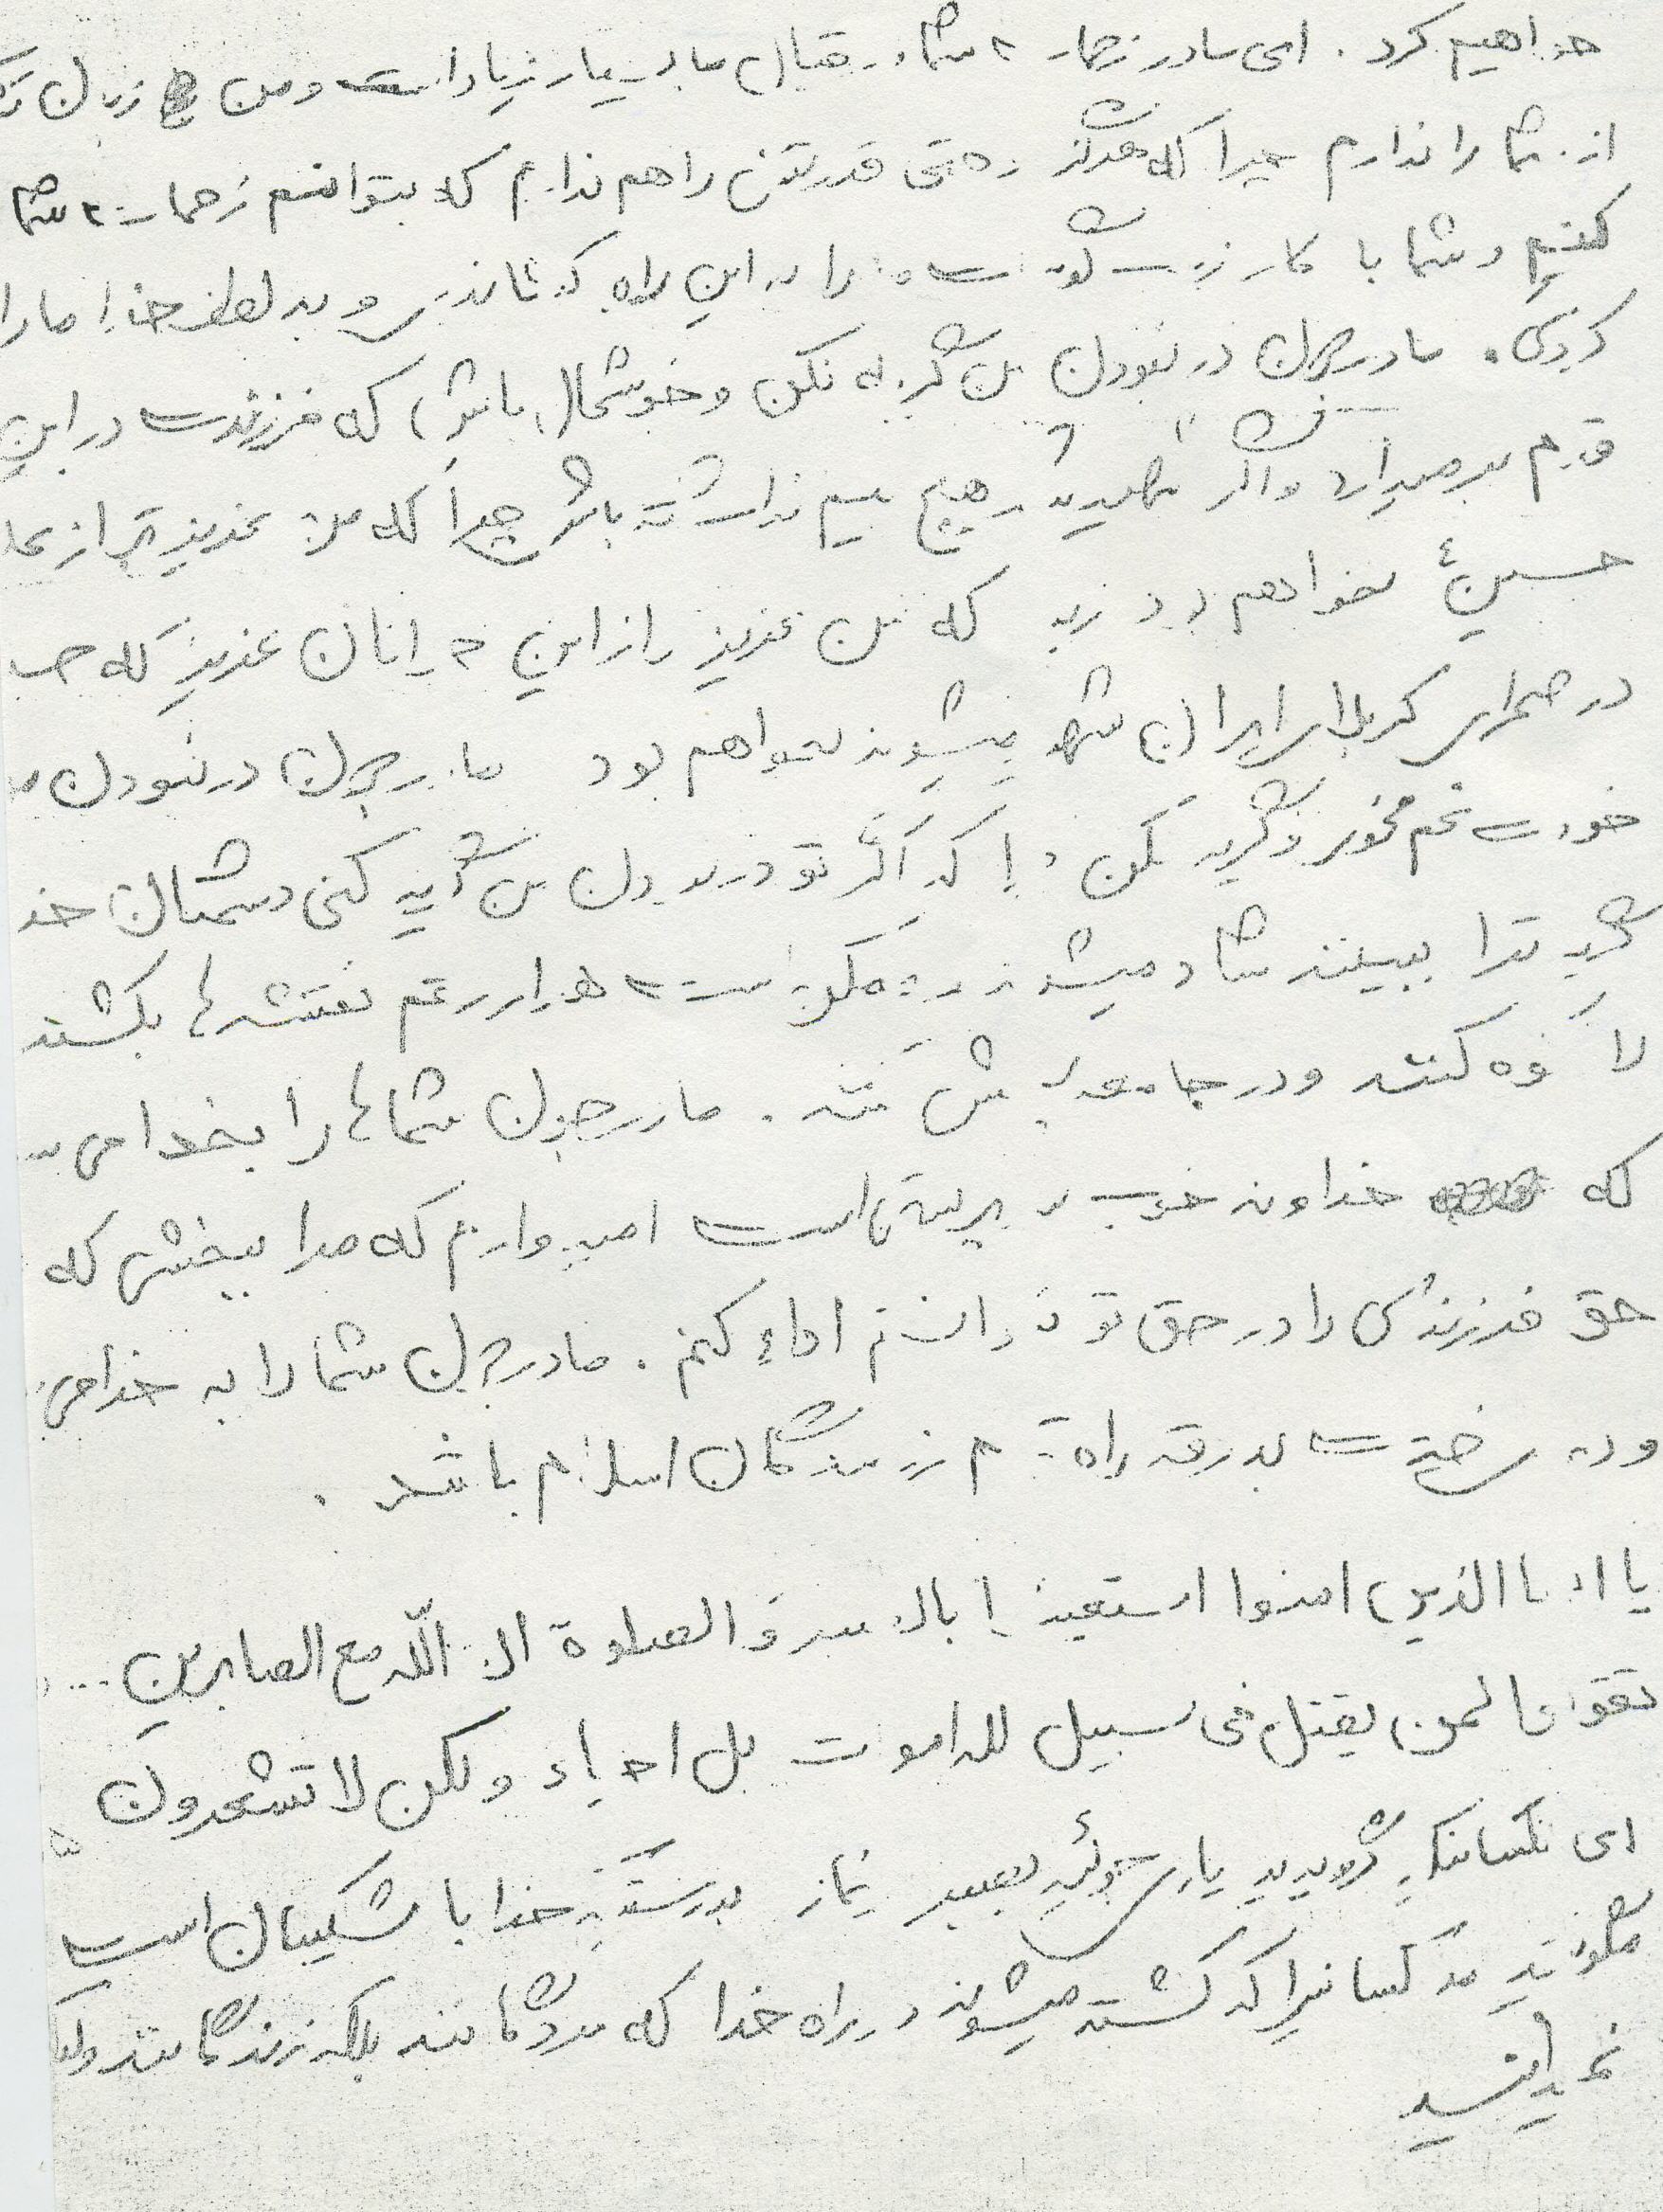 خواهیم کرد. ای مادر زحمات شما در قبال ما بسیار زیاد است و من زبان
از شما را ندارم چرا که هرگز حتی قدرتش را هم ندارم که بتوانم زحمات شما
کنم و شما با کار زحمت ما را به این راه کشاندی و به لطف خدا ما را
کردی. مادر جان در نبودن من گریه نکن و خوشحال باش که فرزندت در این
قدم برمیدارد و اگر شهید شد هیچ غم نداشته باش چرا که من عزیزتر از
حسین ع نخواهم بود زیرا که من عزیزتر از این جوانان عزیز که
در صحرای کربلای ایران شهید میشوند نخواهم بود مادر جان در نبودن
خودت غم مخور و گریه نکن چرا که اگر تو در نبودن من گریه کنی دشمنان
گریه ترا ببینند شاد میشوند و ممکن است هزار رقم نقشه ها بکشند
کنند و در جامعه پخش کنند. مادر جان شماها را بخدا می
که خداوند خوب سرپرستی است امیدوارم که مرا ببخشی که
حق فرزندی را در حق تو نتوانستم اداء کنم. مادر جان شما را به خدا می
بدرقه راه تمام رزمندگان اسلام باشد.
یا ایها الذین امنوا استعینوا بالصبر و الصلوة ان الله مع الصابرین ...
تقولوا لمن یقتل فی سبیل الله اموت بل احیاء ولکن لا تشعرون
ای کسانیکه گرویدید یاری جوئید بصبر نماز بدرستیکه خدا با شکیبان است
مگوئید مر کسانیرا که کشته میشوند در راه خدا که مردگانند بلکه زندگانند
نمیدانید